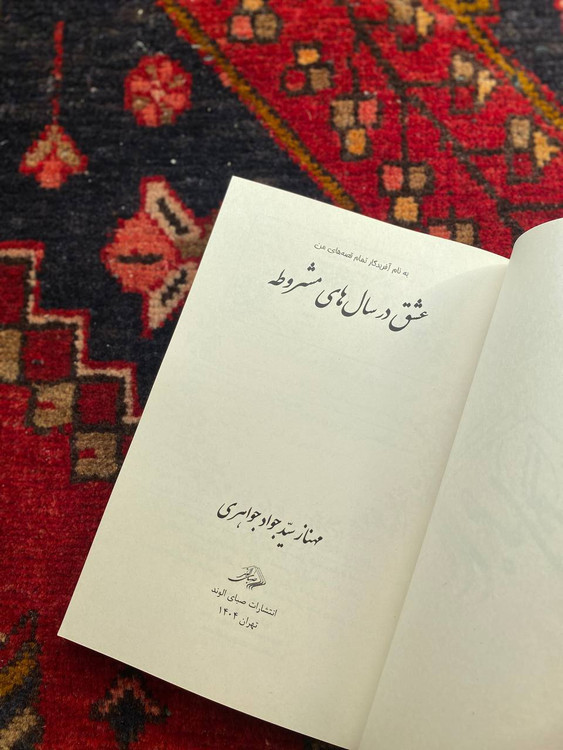 به نام آفریدگار تمام قصه‌های من
عشق در سال های مشروطه
مهناز سیّد جواد جواهری
صبای الوند
انتشارات صبای الوند
تهران ۱۴۰۴